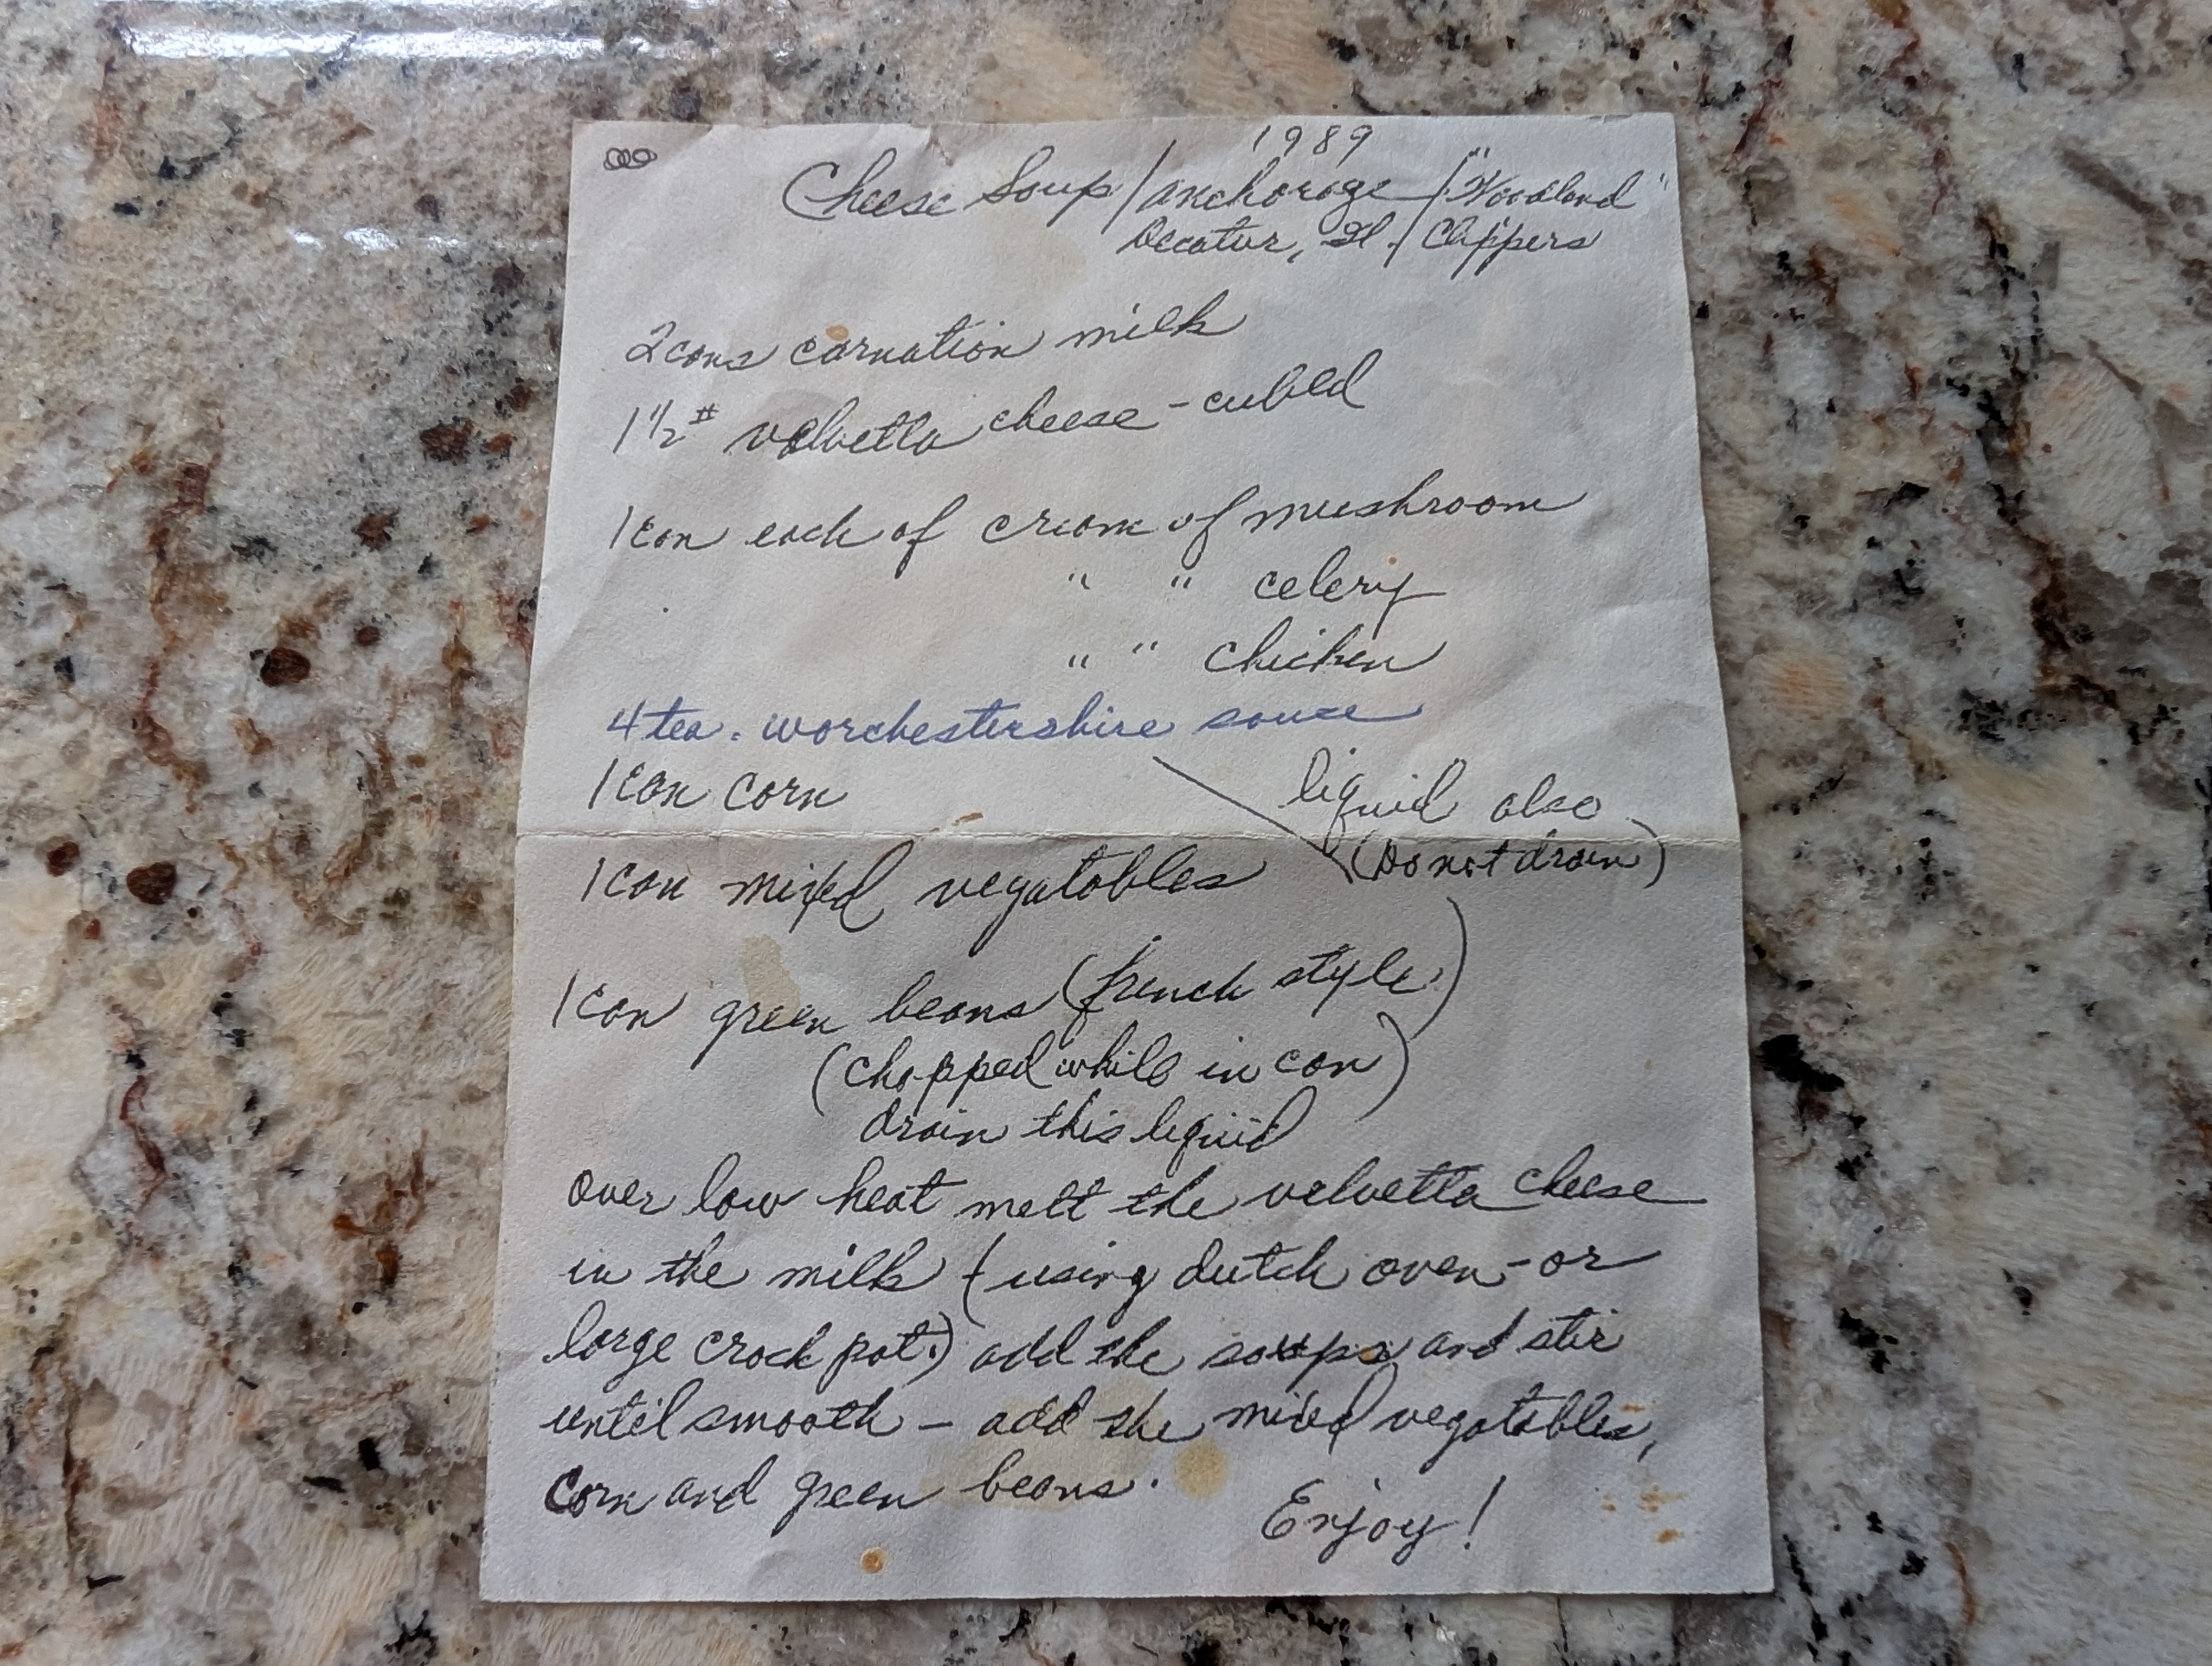 1989
Cheese Soup / Anchorage / "Woodland"
Decatur, Il. / Clippers
2 cans carnation milk
1 1/2 # velvetta cheese - cubed
1 can each of cream of mushroom
" " celery
" " chicken
4 tea. worchestershire sauce
1 can corn
liquid also
(Do not drain)
1 can mixed vegatables
1 can green beans (french style)
(chopped while in can)
drain this liquid
over low heat melt the velvetta cheese
in the milk (using dutch oven - or
large crock pot.) add the soups and stir
until smooth - add the mixed vegatables,
Corn and green beans.
Enjoy!